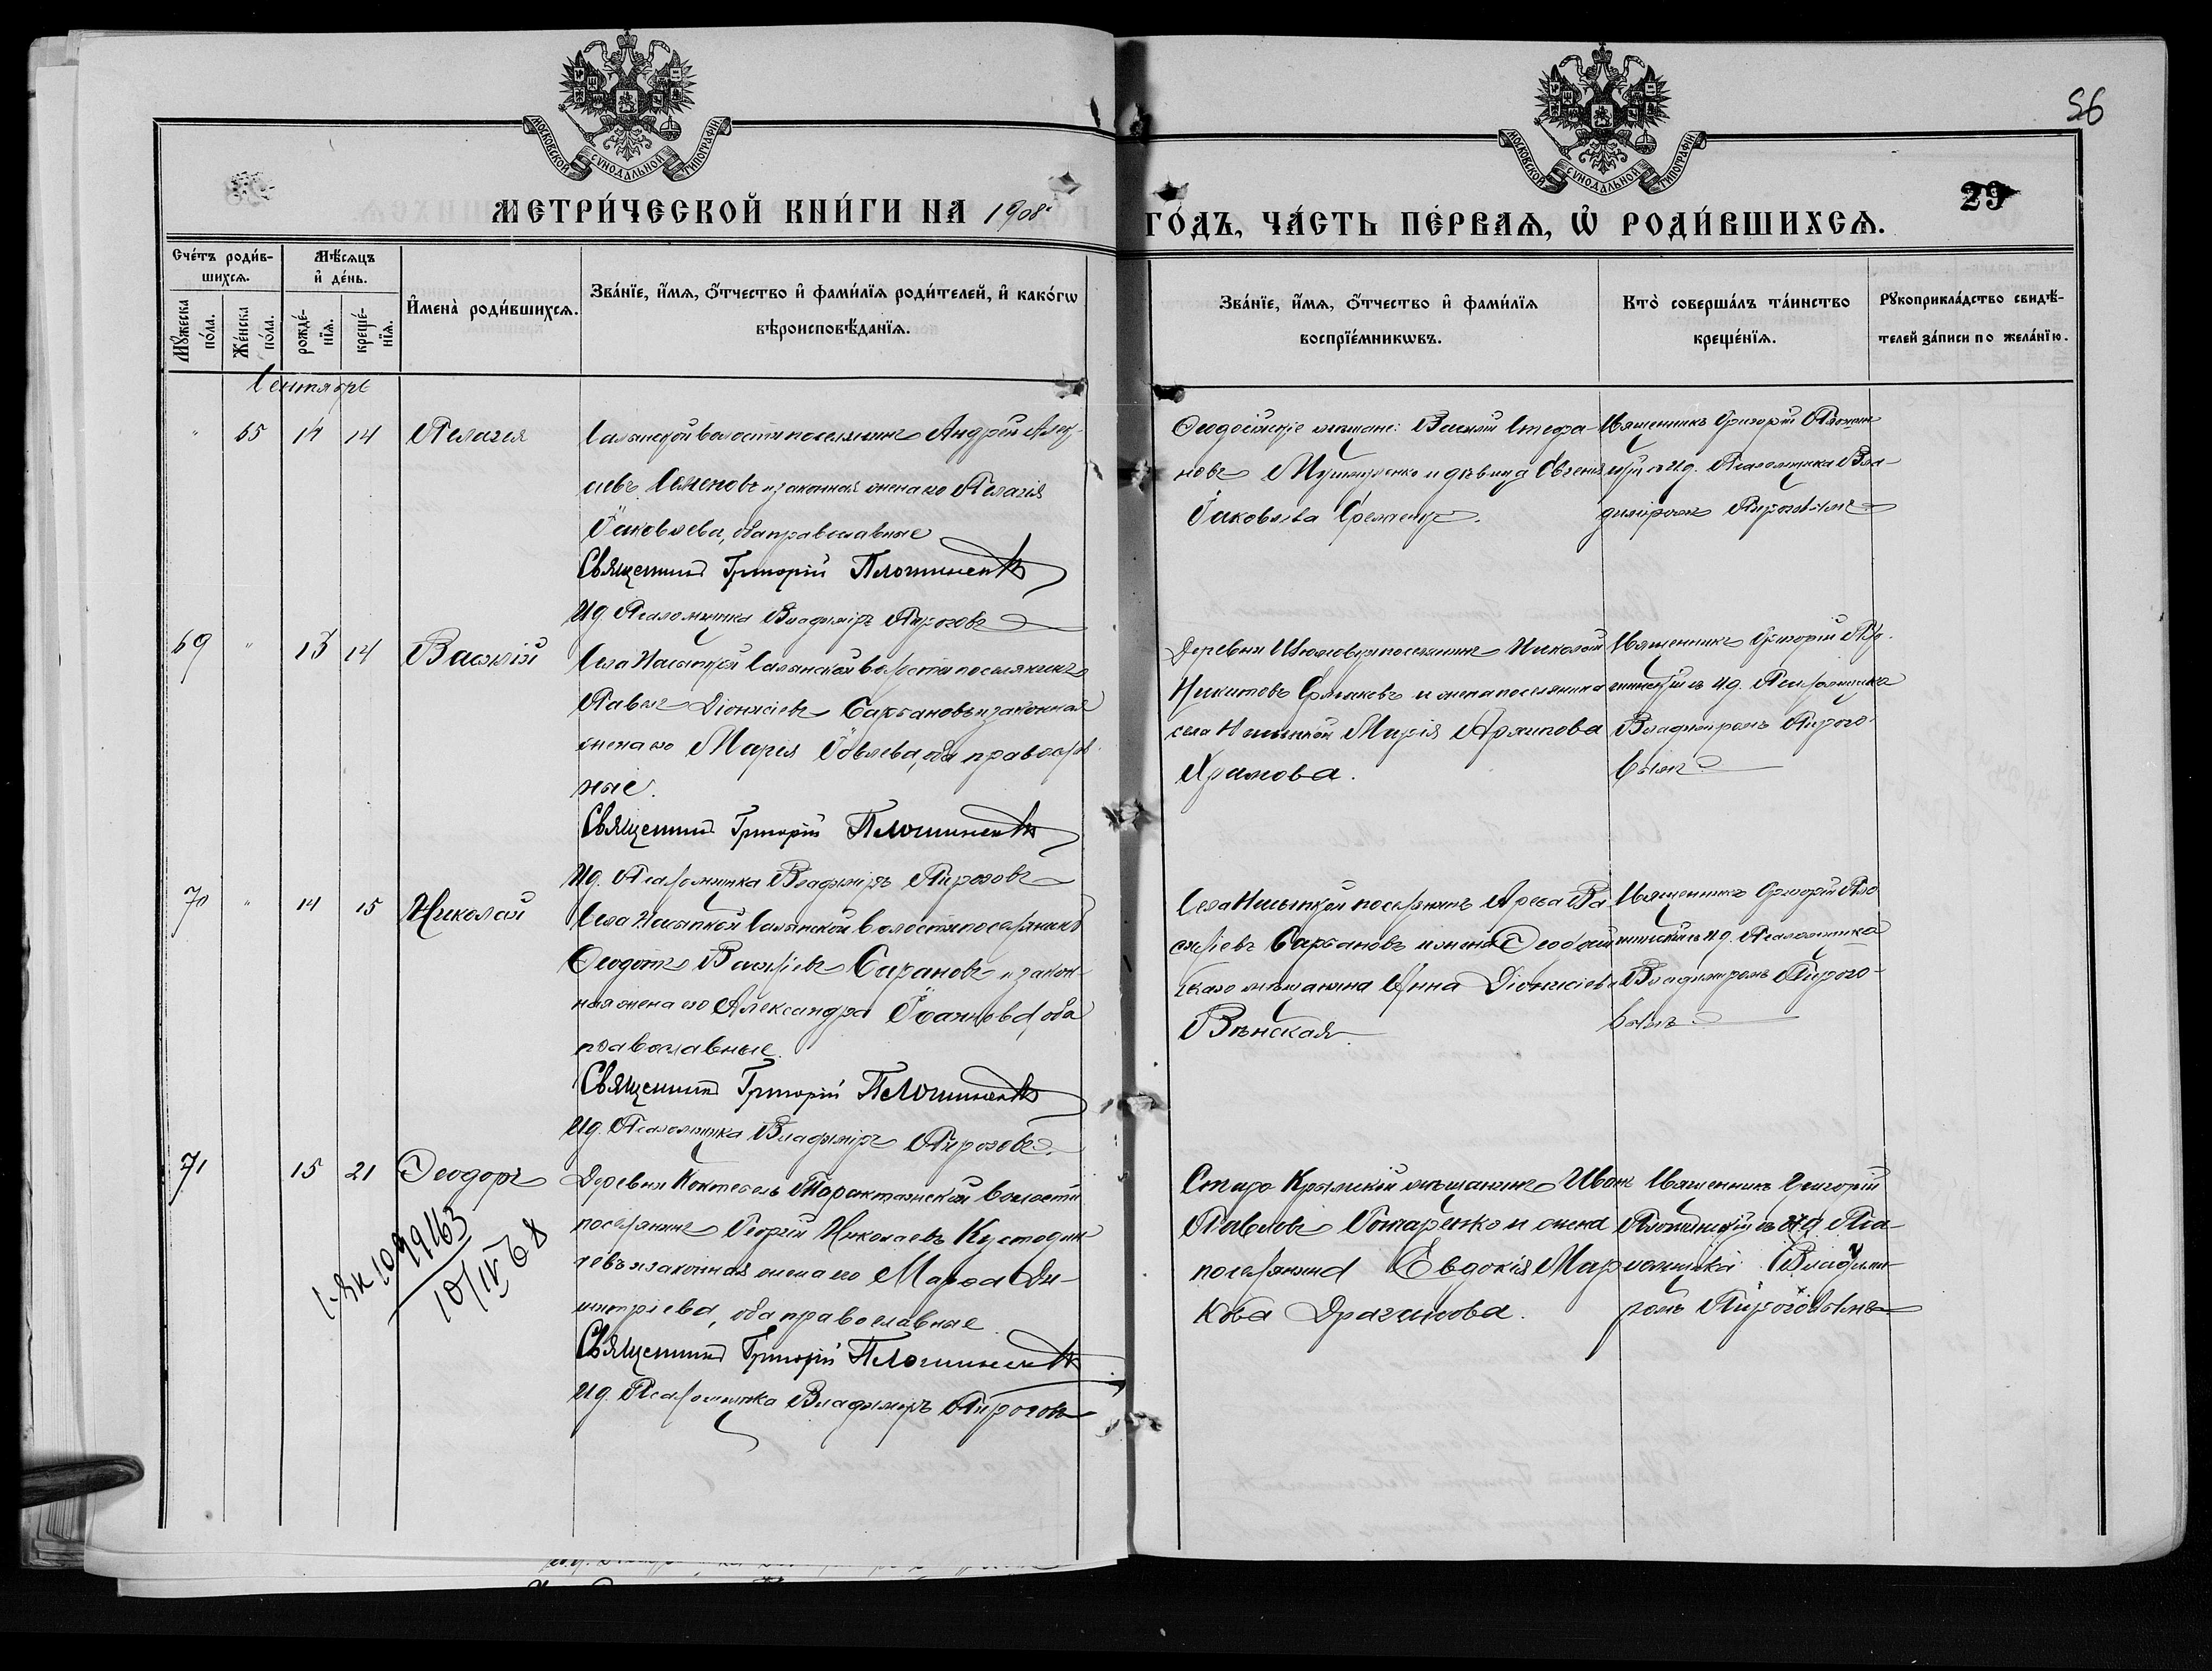 МОСКОВСКОЙ СѴНОДАЛЬНОЙ ТИПОГРАФІИ
МОСКОВСКОЙ СѴНОДАЛЬНОЙ ТИПОГРАФІИ
56
29
МЕТРИ́ЧЕСКОЙ КНИ́ГИ НА 1908 ГО́ДЪ, ЧА́СТЬ ПЕ́РВАѦ, Ѡ҆ РОДИ́ВШИХСѦ.
Сче́тъ роди́в-
шихсѧ.
Мѣ́сѧцъ
и҆ де́нь.
Мꙋ́жеска по́ла.
Же́нска по́ла.
рожде́-нїѧ.
креще́-нїѧ.
И҆мена̀ роди́вшихсѧ.
Зва́нїе, и҆́мѧ, ѻ҆́тчество и҆ фами́лїѧ роди́телей, и҆ како́гѡ
вѣроисповѣ́данїѧ.
Зва́нїе, и҆́мѧ, ѻ҆́тчество и҆ фами́лїѧ
воспрїе́мникѡвъ.
Кто̀ соверша́лъ та́инство
креще́нїѧ.
Рꙋкоприкла́дство свидѣ́-
телей за́писи по жела́нїю.
Сентябрь
65 14 14 Пелагея
Салынской волости поселянинъ Андрей Алек-
Семеновъ и законная жена его Пелагія
Яковлева, оба православные
Священникъ Григорій Плотинскій
Ид. Псаломщика Владиміръ Пироговъ
Ѳеодосійскіе мѣщане: Василій Стефа-
новъ и дѣвица Евгенія
Яковлева
Священникъ Григорій Плотин-
скій съ ид. Псаломщика Вла-
диміромъ Пироговымъ
69 13 14 Василій
Села Насыпкой Салынской волости поселянинъ
Павелъ Діонисіевъ Сарбановъ и законная
жена его Марія Іовлева, оба православ-
ные.
Священникъ Григорій Плотинскій
Ид. Псаломщика Владиміръ Пироговъ
Деревни поселянинъ Николай
Никитовъ и жена поселянина
села Насыпкой Марія Архипова
Храмова.
Священникъ Григорій Пло-
тинскій съ ид. Псаломщика
Владиміромъ Пирого-
вымъ
70 14 15 Николай
Села Насыпкой Салынской волости поселянинъ
Ѳеодотъ Василіевъ Сарановъ и закон-
ная жена его Александра Іоаннова, оба
православные.
Священникъ Григорій Плотинскій
Ид. Псаломщика Владиміръ Пироговъ
Села Насыпкой поселянинъ Арефа Ва-
силіевъ Сарбановъ и жена Ѳеодосій-
скаго мѣщанина Анна Діонисіева
Вѣнская.
Священникъ Григорій Пло-
тинскій съ ид. Псаломщика
Владиміромъ Пирого-
вымъ
71 15 21 Ѳеодоръ
I-ЯК 1099163
10/IV 68
Деревни Коктебель Таракташской волости
поселянинъ Георгій Николаевъ Кустодин-
чевъ и законная жена его Марѳа Ди-
митріева, оба православные
Священникъ Григорій Плотинскій
Ид. Псаломщика Владиміръ Пироговъ
Старо-Крымскій мѣщанинъ Иванъ
Павловъ Гончаренко и жена
поселянина Евдокія Мар-
кова Драганова.
Священникъ Григорій
Плотинскій съ ид. Пса-
ломщика Владимі-
ромъ Пироговымъ